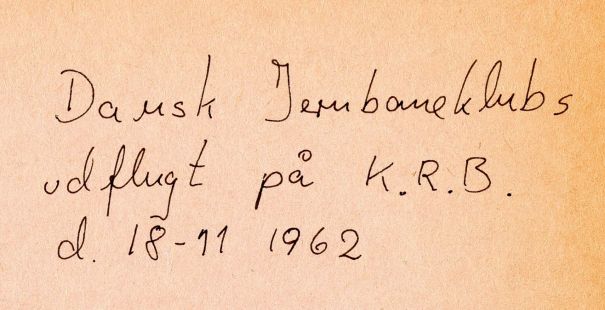 Dansk Jernbaneklubs
udflugt på K.R.B.
d. 18-11 1962